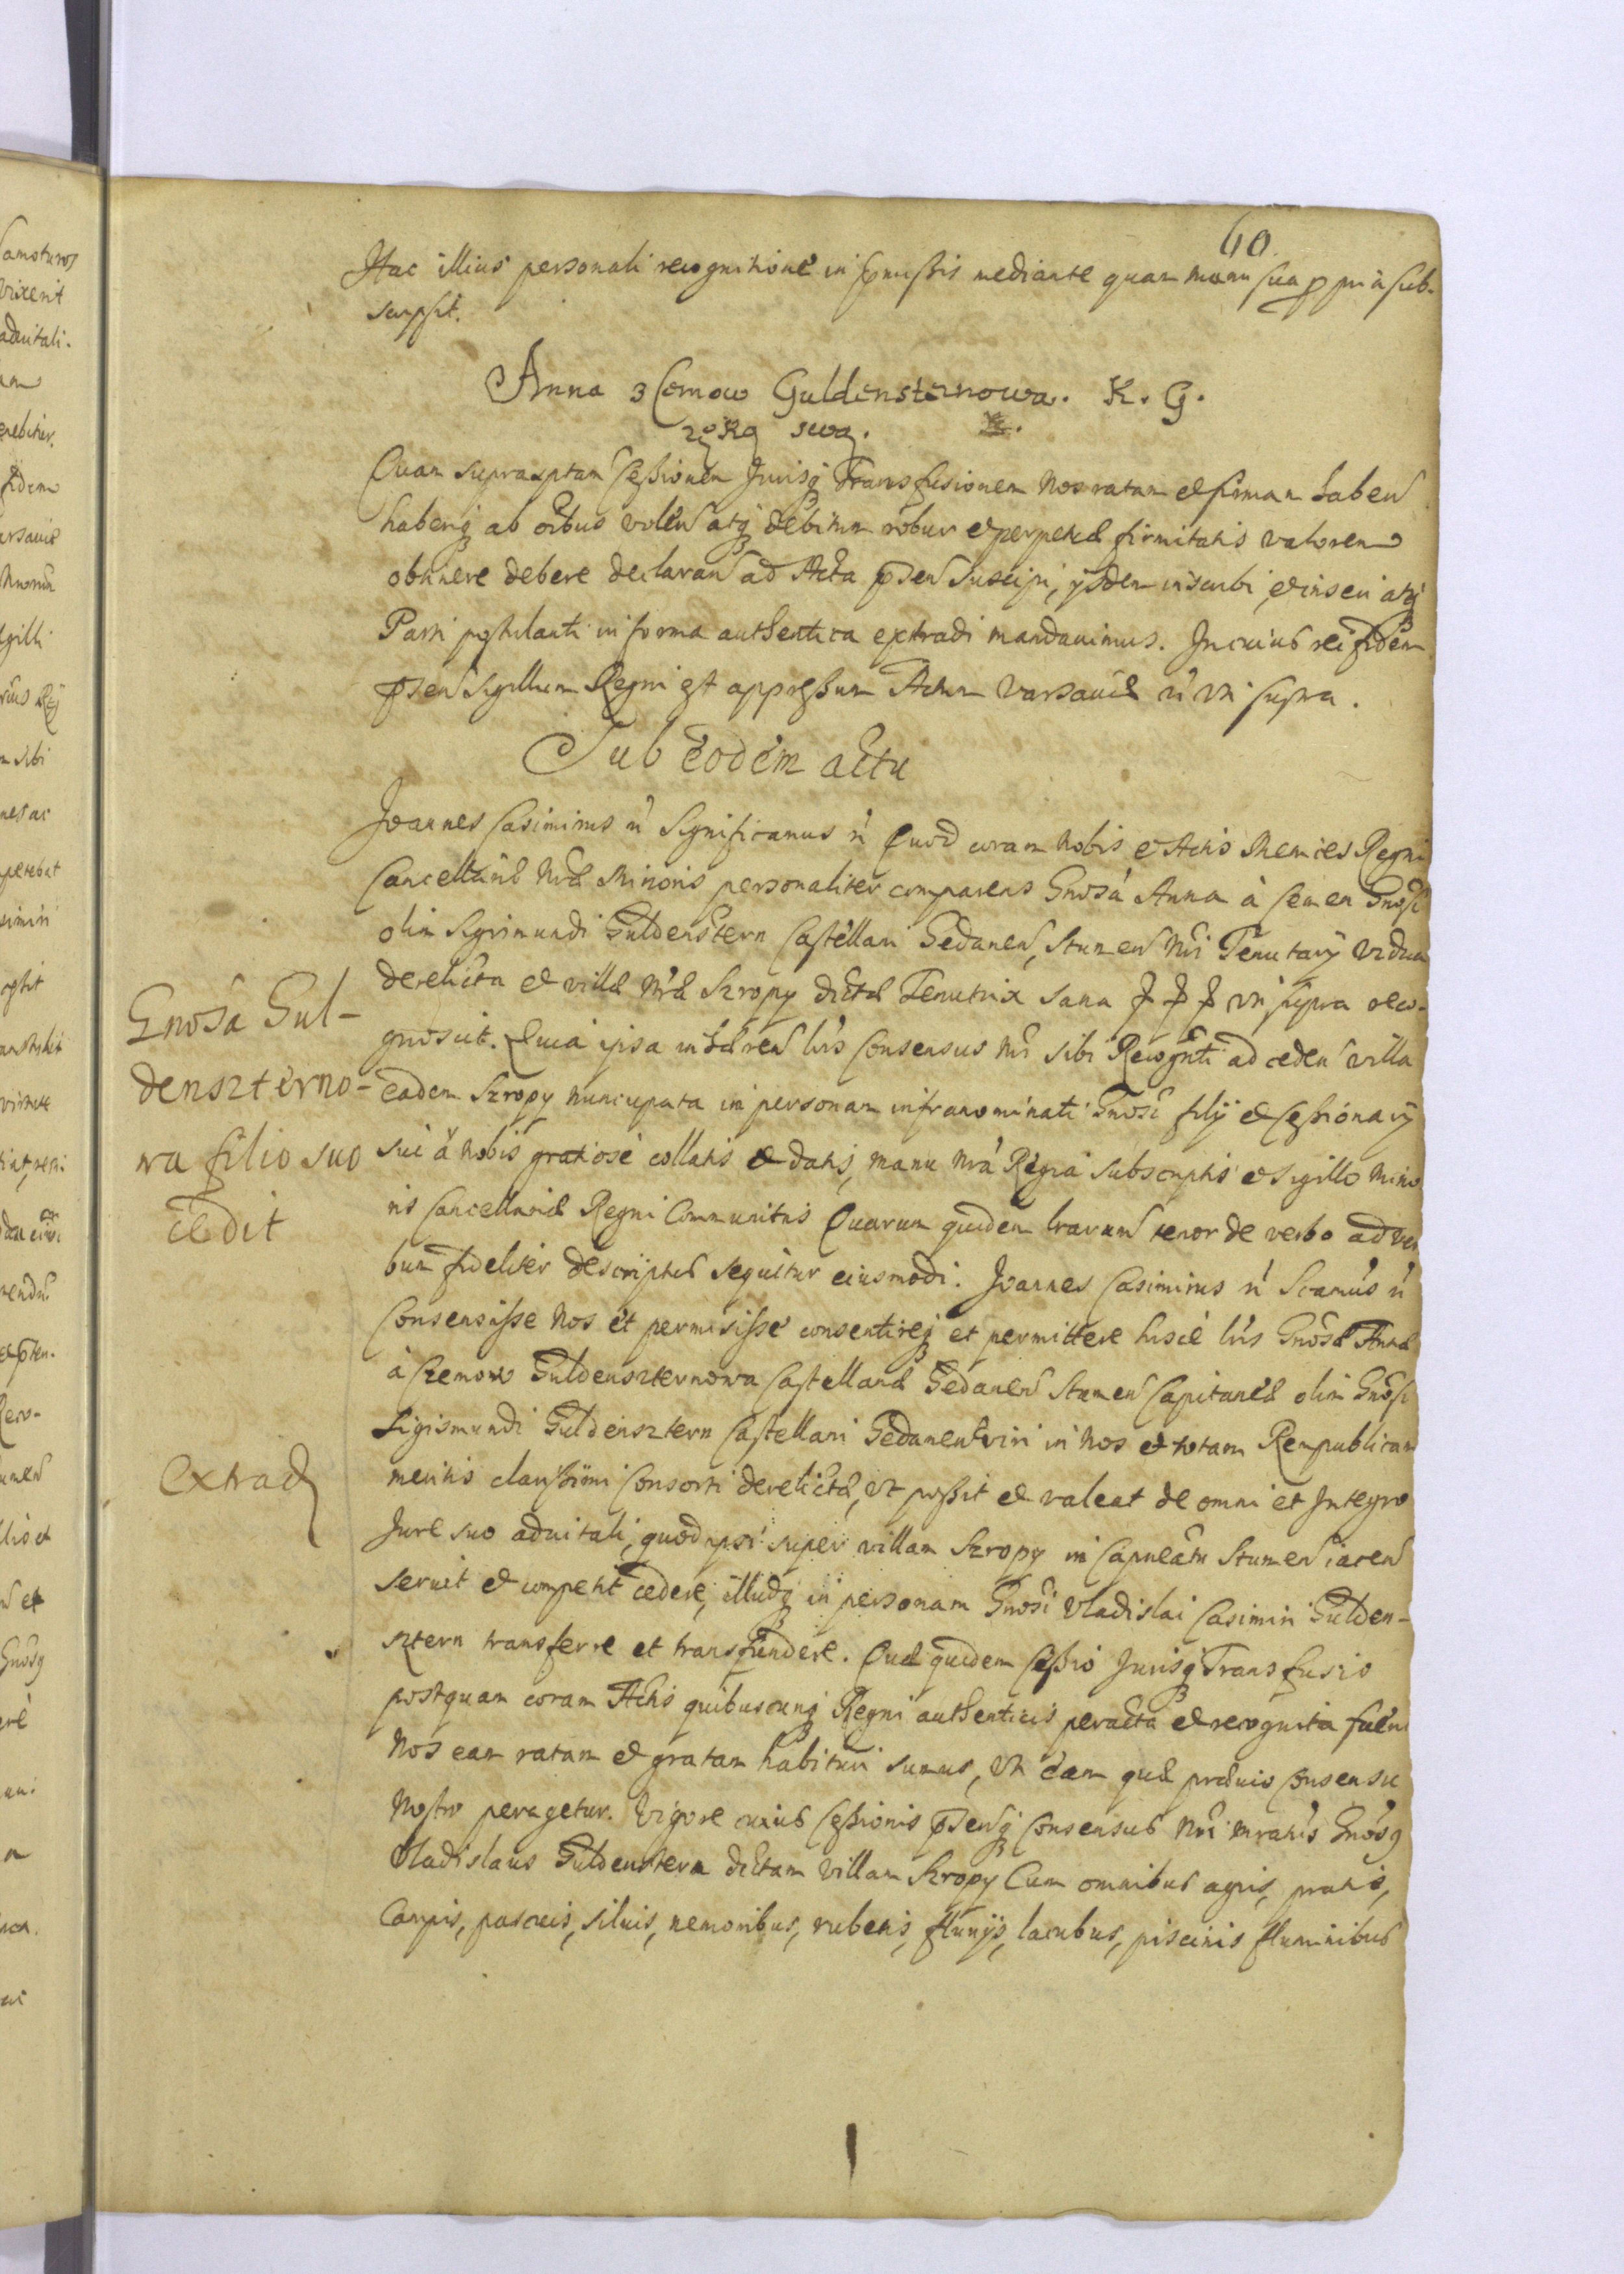 40
Hac illius personali recognitione in præmissis mediante quam manu sua propria sub-
scripsit.
Anna z Cemow Guldensternowa. K. G.
ręką swą.
Quam suprascptam Cessionem Jurisq Transfusionem Nos ratam et firmam haben
haberiq ab oibus volen atq debitum robur et perpetuæ firmitatis valorem
obtinere debere declaran ad Acta præsen suscipi, ijsdem inscribi et inseri atq
Parti postulanti in forma authentica extradi mandavimus. In cuius rei fidem
præsen Sigillum Regni est appressum Actum Varsaviæ ut supra.
Sub eodem actu
Joannes Casimirus Significamus Quod coram Nobis et Actis Regni
Cancellariæ Nræ Minoris personaliter comparens Gnosa Anna à Cemen Gnosi
olim Sigismundi Guldenstern Castellani Gedanen, Stumen Nri Tenutarij vidua
derelicta et villæ Nræ Szropy dictæ Tenutrix sana uti supra reco-
gnoscit. Quia ipsa inhæren lris Consensus Nri sibi Recognti ad ceden villa
eadem Szropy nuncupata in personam infranominati Gnosi filij et Cessionarij
sui à Nobis gratiose collatis et datis, manu Nra Regia subscriptis et sigillo Mino
ris Cancellariæ Regni Communitis Quarum quidem lrarum tenor de verbo ad ver
bum fideliter descriptus sequitur eiusmodi. Joannes Casimirus
Consensisse Nos et permisisse consentireq et permittere hisce lris Gnosæ Annæ
à Czemow Guldenszternowa Castellanæ Gedanen Stumen Capitaneæ olim Gnosi
Sigismundi Guldensztern Castellani Gedanen viri in Nos et totam Rempublicam
meritis clarissimi Consorti derelictæ, Ut possit et valeat de omni et Integro
Jure suo advitali, quod ipsi super villam Szropy in Capneatu Stumen iacen
servit et competit cedere, illudq in personam Gnosi Vladislai Casimiri Gulden-
sztern transferre et transfundere. Quæ quidem Cessio Jurisq Transfusio
postquam coram Actis quibuscunq Regni authenticis peracta et recognita fuerit
Nos eam ratam et gratam habituri sumus, Uti eam quæ prævio Consensu
Nostro peragetur. Vigore cuius Cessionis præsenq Consensus Nri Gnosq
Vladislaus Guldenstern dictam villam Szropy Cum omnibus agris, pratis,
Campis, pascuis, silvis, nemoribus, rubetis, fluvijs, lacubus, piscinis fluminibus
Gnosa Gul-
denszterno-
wa filio suo
cedit
Extrad